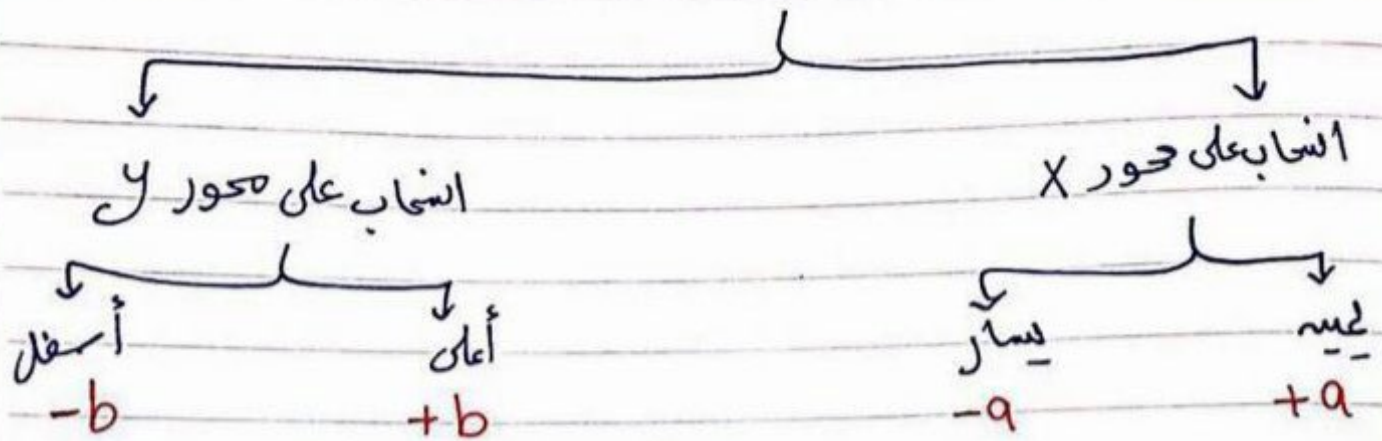 انسحاب على محور X
انسحاب على محور y
يمين
يسار
أعلى
أسفل
+a
-a
+b
-b